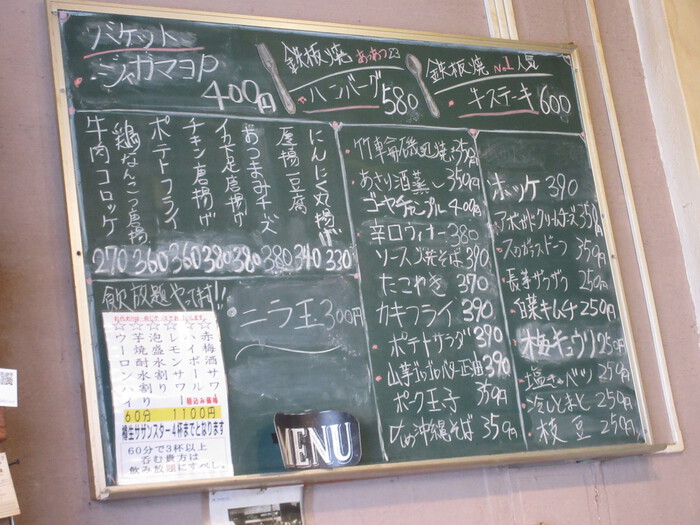 バケット
ジャガマヨP
400円
鉄板焼 あつあつ
ハンバーグ 580
鉄板焼 No.1人気
牛ステーキ 600
にんにく丸揚げ 330
厚揚豆腐 340
おつまみチーズ 380
イカ下足唐揚げ 380
チキン唐揚げ 380
ポテトフライ 360
鶏なんこつ唐揚 360
牛肉コロッケ 270
竹輪磯辺焼 350円
あさり酒蒸し 350円
ゴーヤチャンプル 400円
辛口ウィンナー 380
ソース焼そば 390
たこやき 370
カキフライ 390
ポテトサラダ 390
山芋バター正油 390
ポク玉子 350円
沖縄そば 350円
ホッケ 390
アボガドクリームチーズ 350円
350円
長芋サクサク 250円
白菜キムチ 250円
梅キュウリ 250円
塩キャベツ 250円
冷しとまと 250円
枝豆 250円
飲放題やってます!!
ニラ玉 300円
☆赤梅酒
☆ハイボール
☆レモンサワー
☆泡盛水割り
☆芋焼酎水割り
☆ウーロンハイ
税込み価格
60分 1100円
柳生サザンスター4杯までとなります
60分で3杯以上
呑む貴方は
飲み放題にすべし。
MENU